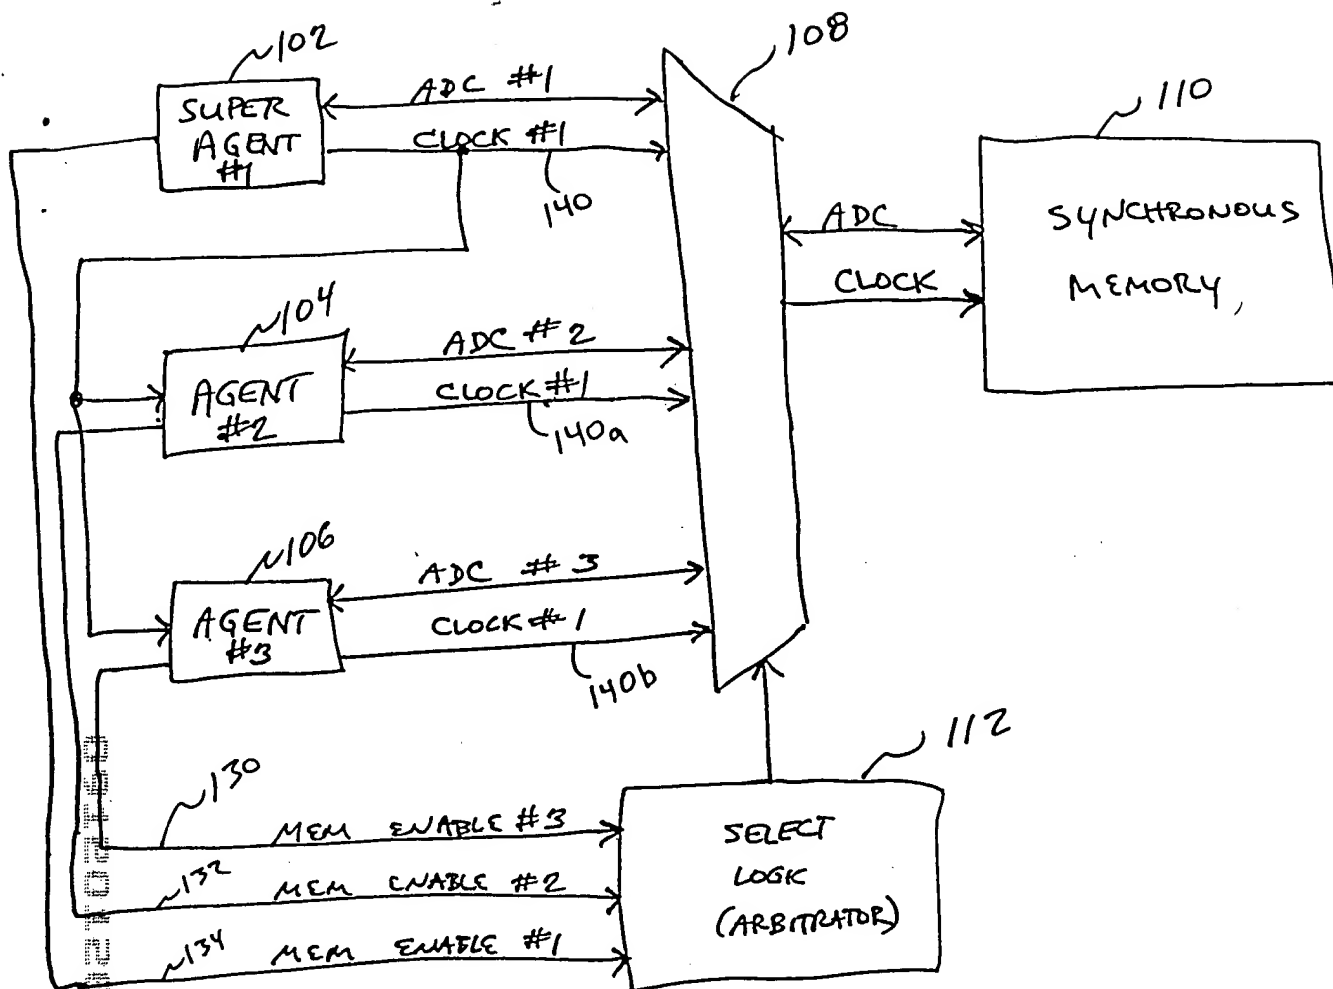 102
108
SUPER
AGENT
#1
ADC #1
CLOCK #1
140
110
SYNCHRONOUS
MEMORY,
ADC
CLOCK
104
AGENT
#2
ADC #2
CLOCK #1
140a
106
AGENT
#3
ADC #3
CLOCK #1
140b
112
SELECT
LOGIC
(ARBITRATOR)
130
MEM ENABLE #3
132
MEM ENABLE #2
134
MEM ENABLE #1